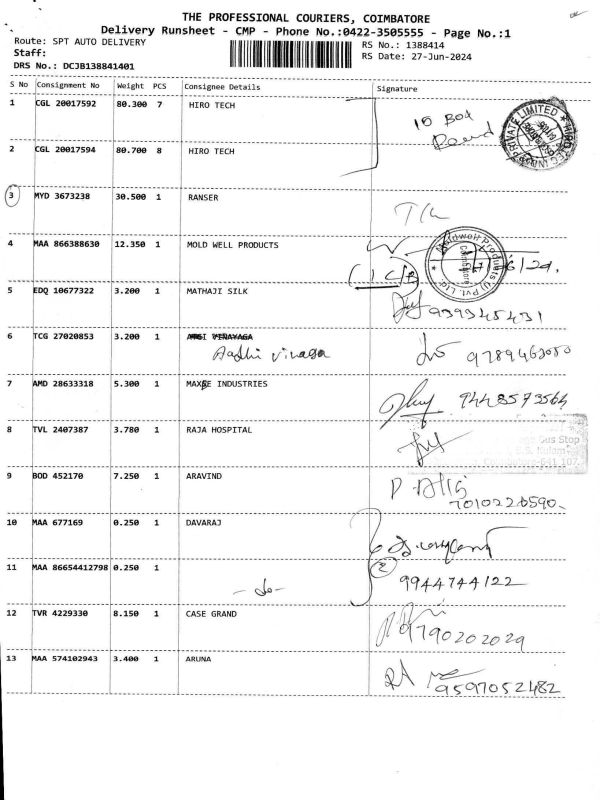 THE PROFESSIONAL COURIERS, COIMBATORE
Delivery Runsheet - CMP - Phone No.:0422-3505555 - Page No.:1
Route: SPT AUTO DELIVERY
RS No.: 1388414
Staff:
RS Date: 27-Jun-2024
DRS No.: DCJB138841401
S No Consignment No Weight PCS Consignee Details Signature
1 CGL 20017592 80.300 7 HIRO TECH
10 Box
PRIVATE LIMITED
2 CGL 20017594 80.700 8 HIRO TECH
3 MYD 3673238 30.500 1 RANSER
4 MAA 866388630 12.350 1 MOLD WELL PRODUCTS
Moldwell Products (I) Pvt. Ltd.
Coimbatore
5 EDQ 10677322 3.200 1 MATHAJI SILK
9393454431
6 TCG 27020853 3.200 1 VINAYAGA
Aadhi Vinaga
7 AMD 28633318 5.300 1 MAXBE INDUSTRIES
9448573564
8 TVL 2407387 3.780 1 RAJA HOSPITAL
Bus Stop
641 107
9 BOD 452170 7.250 1 ARAVIND
7010226590
10 MAA 677169 0.250 1 DAVARAJ
11 MAA 86654412798 0.250 1
- do -
2
9944744122
12 TVR 4229330 8.150 1 CASE GRAND
9790202029
13 MAA 574102943 3.400 1 ARUNA
9597052482